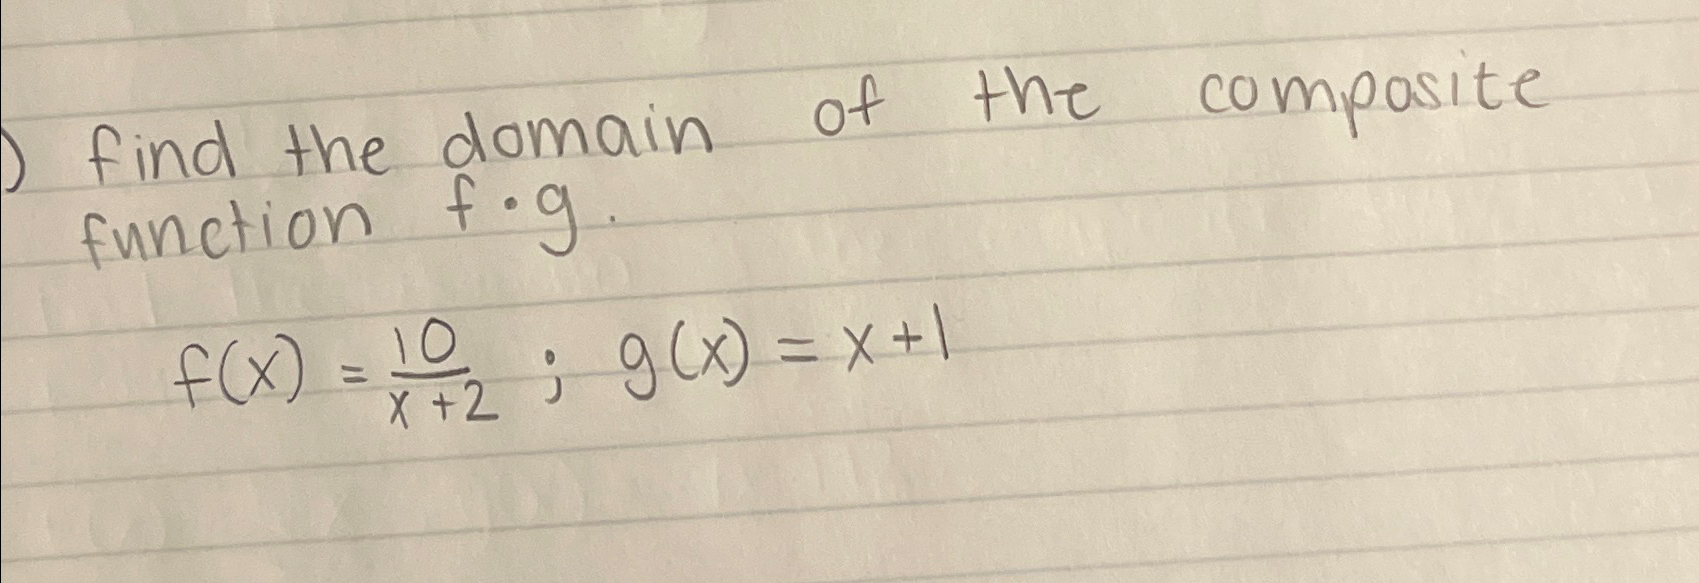 ) find the domain of the composite
function f·g.
f(x) = 10/(x+2) ; g(x) = x+1